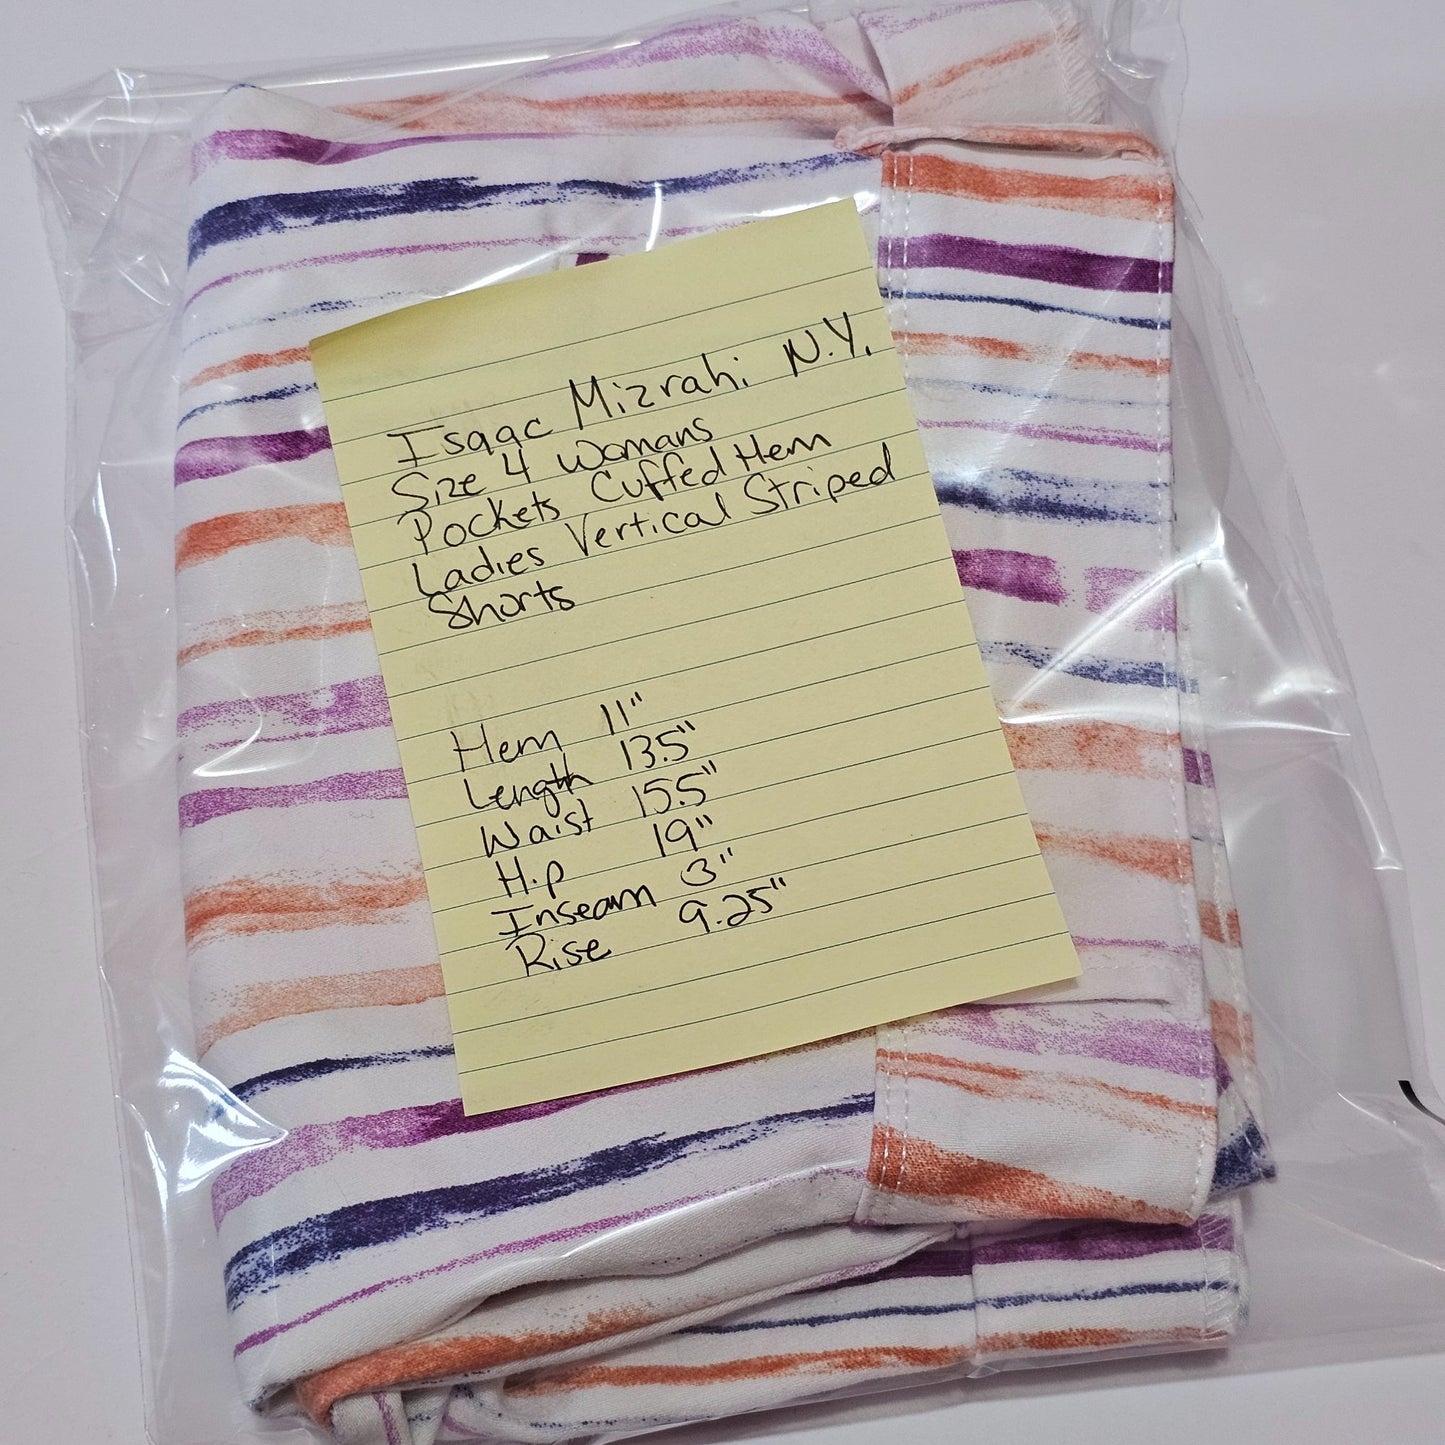 Isaac Mizrahi N.Y.
Size 4 Womans
Pockets Cuffed Hem
Ladies Vertical Striped
Shorts
Hem 11"
Length 13.5"
Waist 15.5"
Hip 19"
Inseam 3"
Rise 9.25"